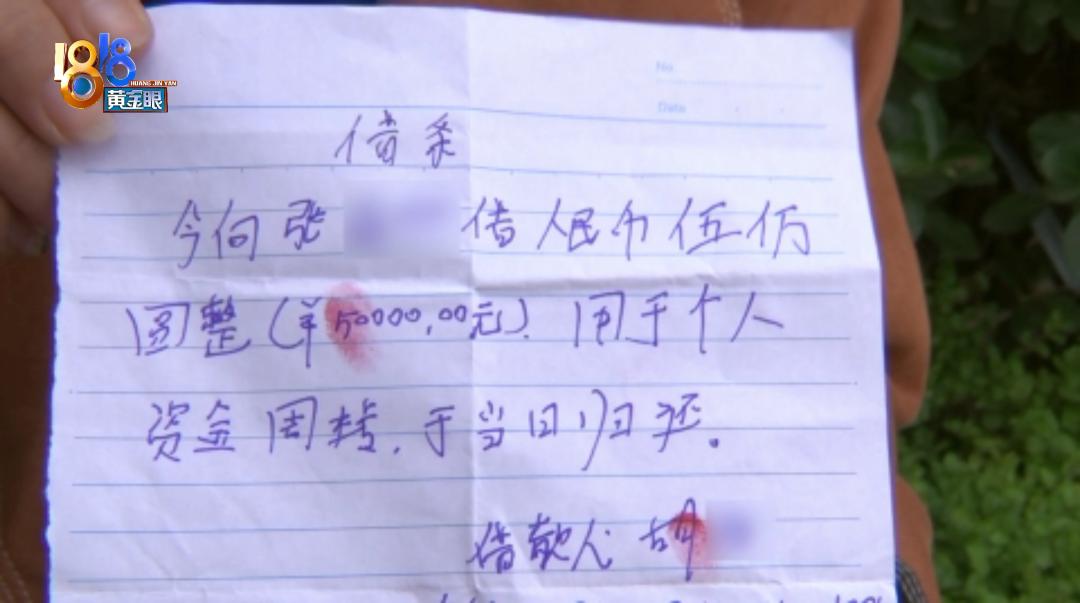 1818
HUANG JIN YAN
黄金眼
No.
Date
借条
今向张 借人民币伍仟
圆整(¥50000.00元). 用于个人
资金周转,于当日归还。
借款人 胡